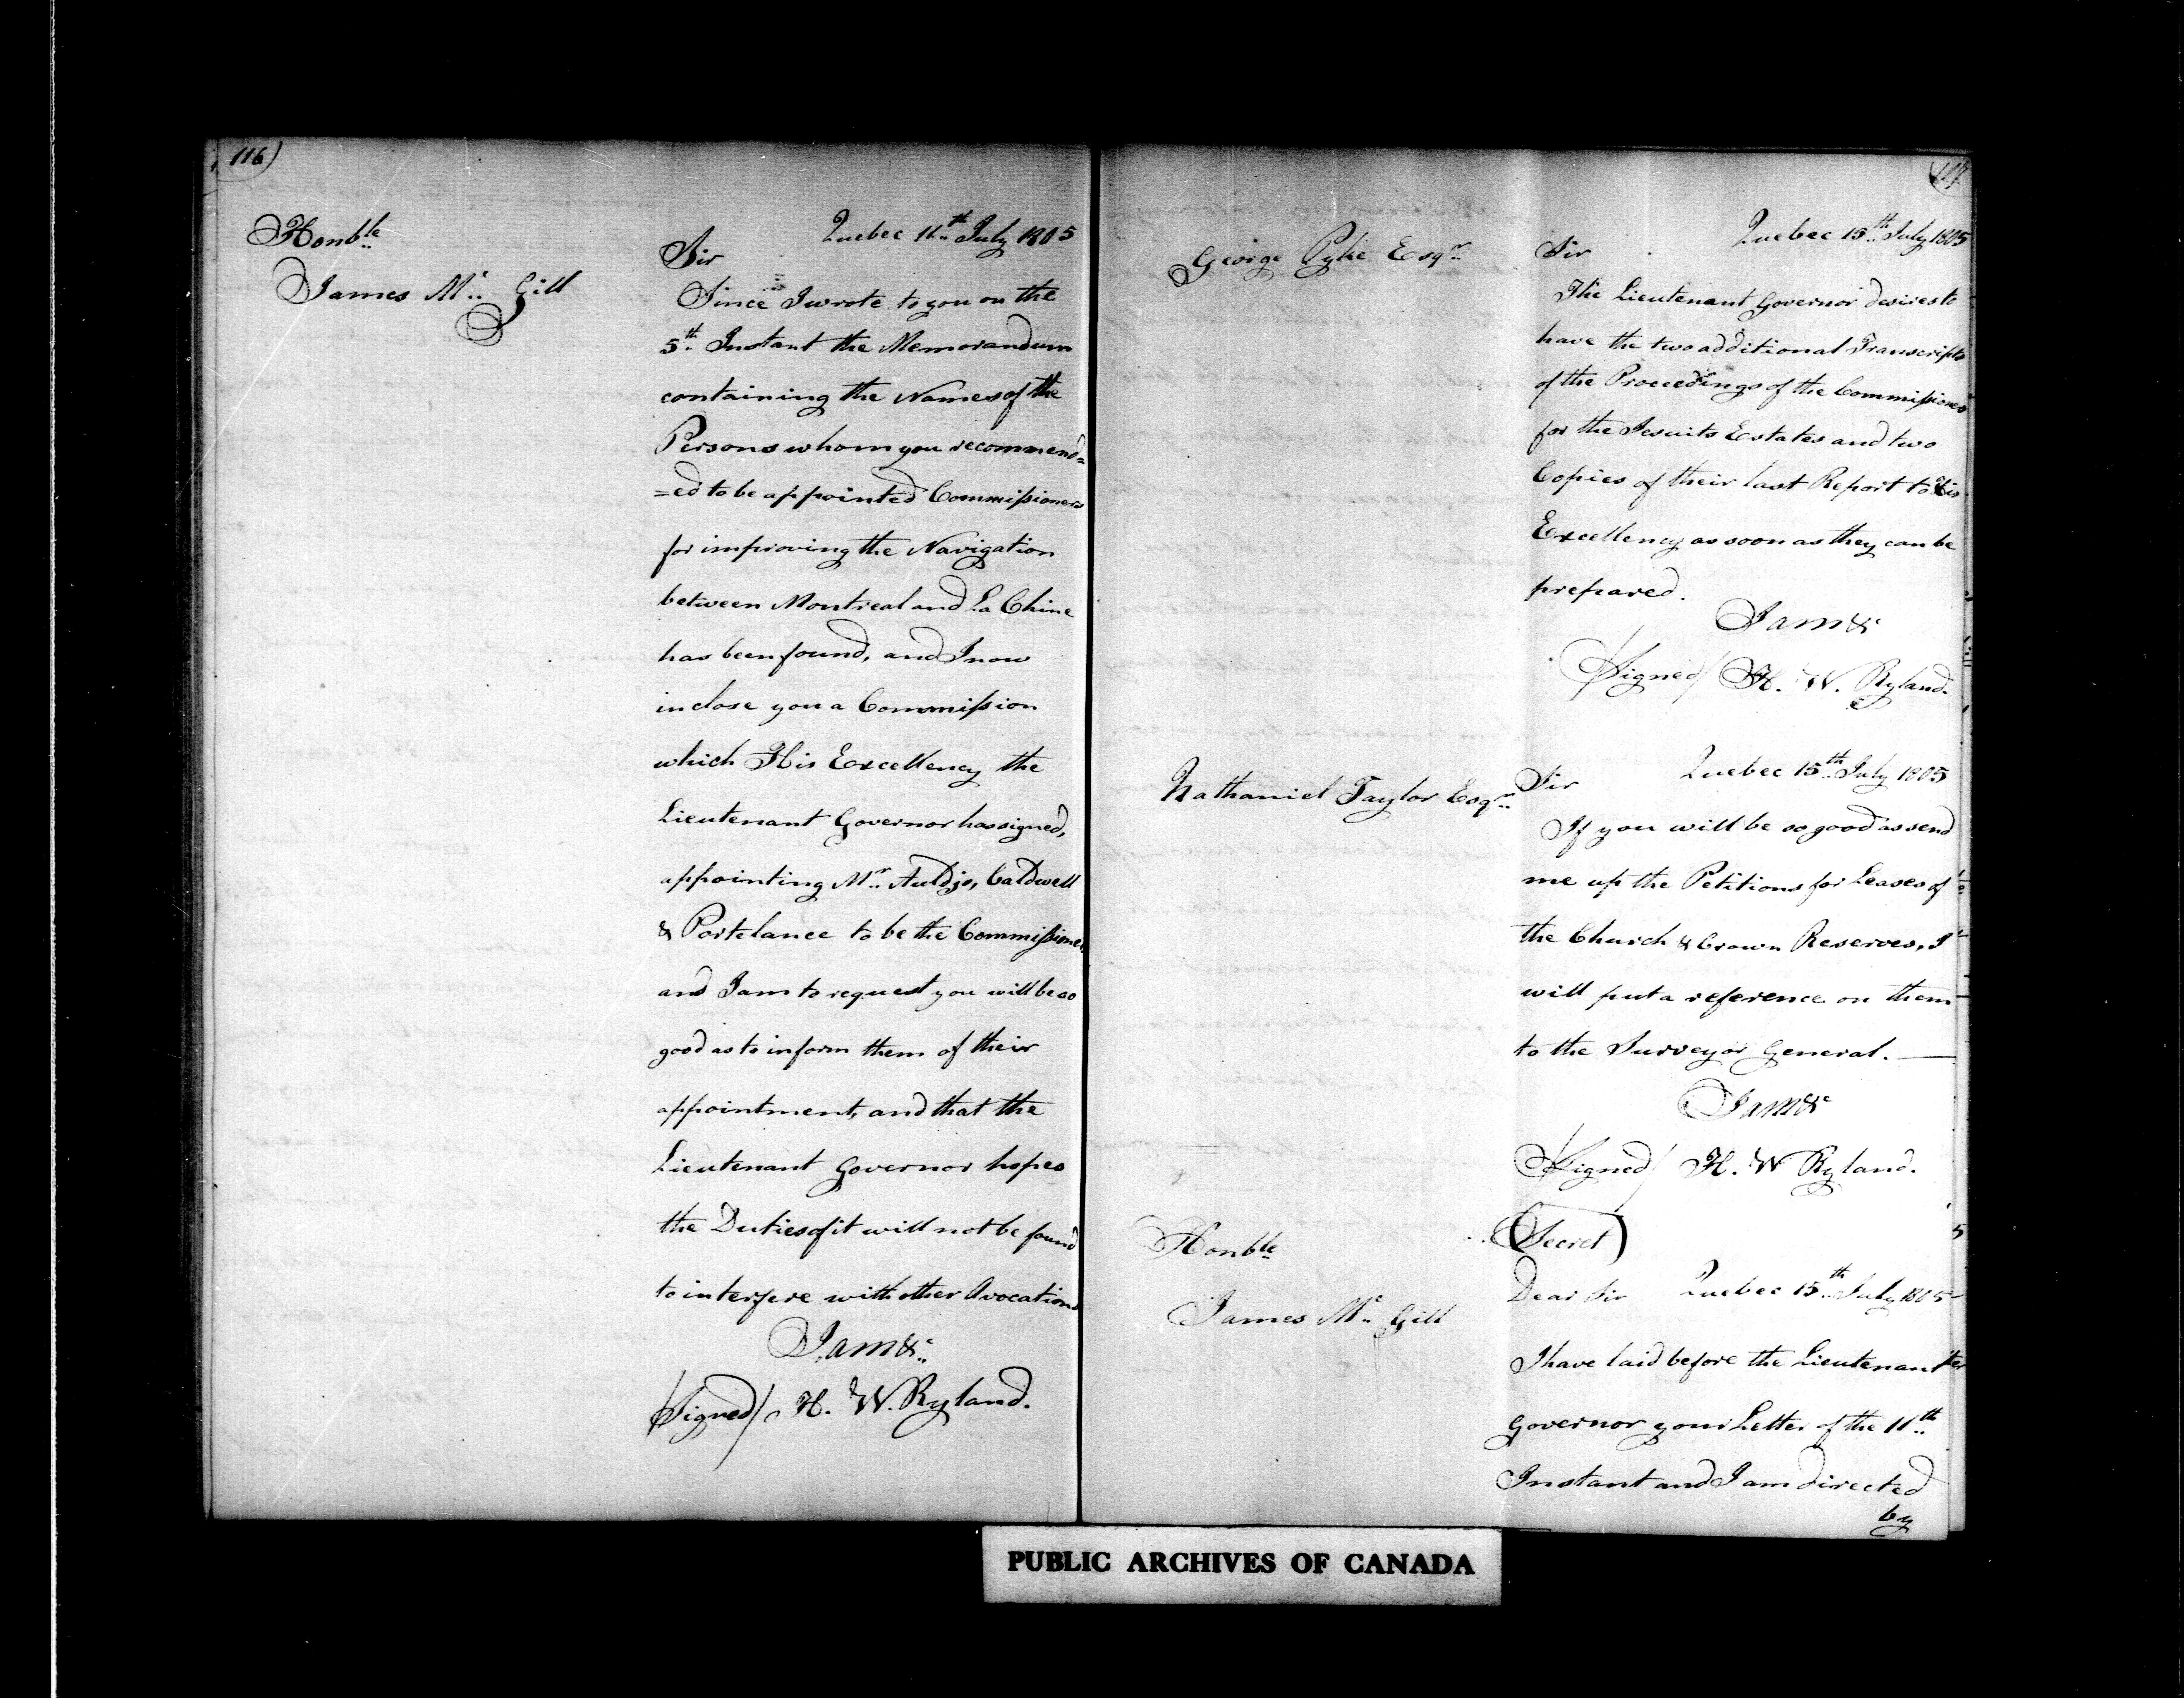 116)
Honble
James Mc Gill
Quebec 11th July 1805
Sir
Since I wrote to you on the
5th Instant the Memorandum
containing the Names of the
Persons whom you recommend=
=ed to be appointed Commissioners
for improving the Navigation
between Montreal and La Chine
has been found, and I now
inclose you a Commission
which His Excellency the
Lieutenant Governor has signed,
appointing Mr Auldjo, Caldwell
& Portelance to be the Commissioners
and I am to request you will be so
good as to inform them of their
appointment, and that the
Lieutenant Governor hopes
the Duties of it will not be found
to interfere with other Avocations
I am &c
/Signed/ H. W. Ryland.
(117
George Pyke Esqr
Quebec 15th July 1805
Sir
The Lieutenant Governor desires to
have the two additional Transcripts
of the Proceedings of the Commissioners
for the Jesuits Estates and two
Copies of their last Report to His
Excellency as soon as they can be
prepared.
I am &c
/Signed/ H. W. Ryland.
Nathaniel Taylor Esqr
Quebec 15th July 1805
Sir
If you will be so good as send
me up the Petitions for Leases of
the Church & Crown Reserves, I
will put a reference on them
to the Surveyor General.
I am &c
/Signed/ H. W Ryland.
(Secret)
Honble
James Mc Gill
Dear Sir Quebec 15th July 1805
I have laid before the Lieutenant
Governor your Letter of the 11th
Instant and I am directed
by
PUBLIC ARCHIVES OF CANADA